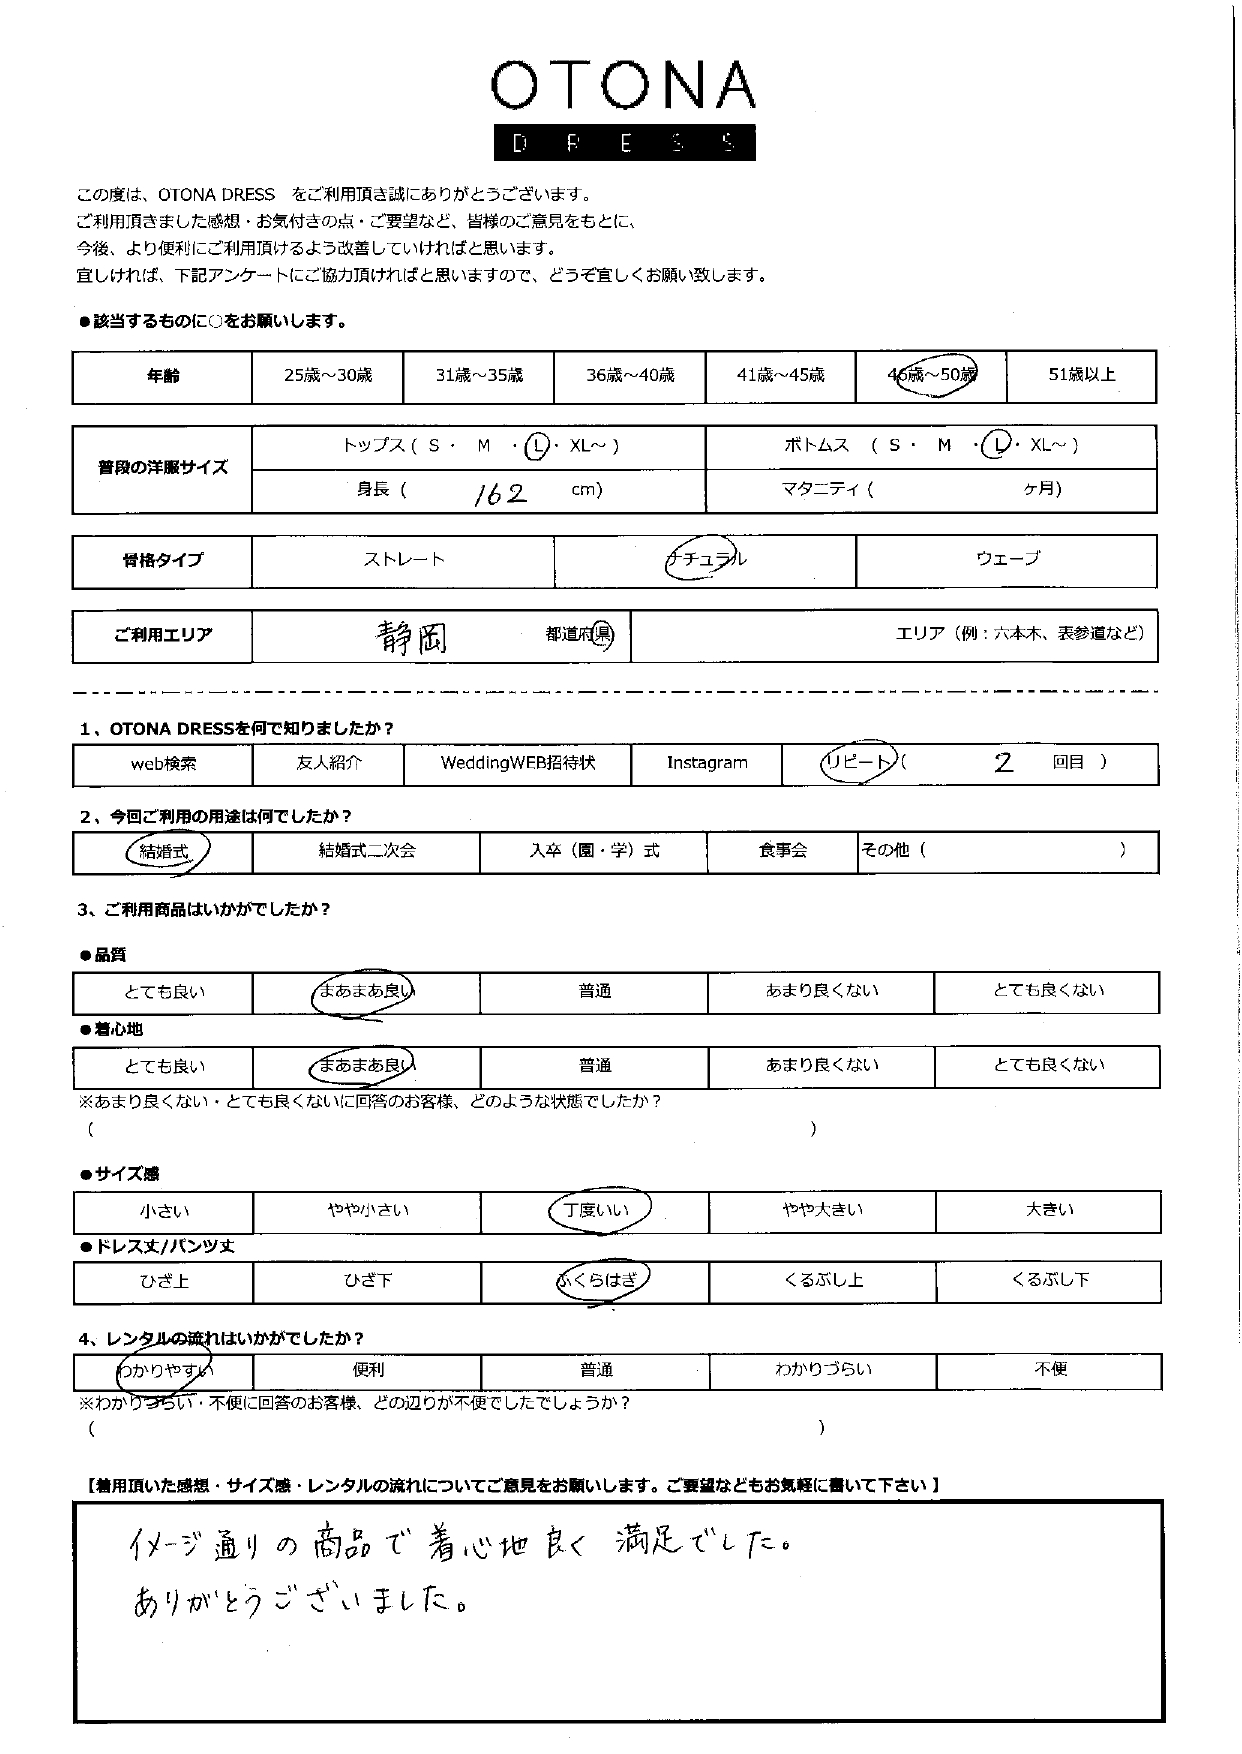 OTONA
DRESS
この度は、OTONA DRESS　をご利用頂き誠にありがとうございます。
ご利用頂きました感想・お気付きの点・ご要望など、皆様のご意見をもとに、
今後、より便利にご利用頂けるよう改善していければと思います。
宜しければ、下記アンケートにご協力頂ければと思いますので、どうぞ宜しくお願い致します。
●該当するものに○をお願いします。
年齢 25歳～30歳 31歳～35歳 36歳～40歳 41歳～45歳 46歳～50歳 51歳以上
普段の洋服サイズ トップス ( S ・ M ・ L ・ XL～ ) ボトムス ( S ・ M ・ L ・ XL～ )
身長 ( 162 cm) マタニティ ( ヶ月)
骨格タイプ ストレート ナチュラル ウェーブ
ご利用エリア 静岡 都道府県 エリア（例：六本木、表参道など）
1、OTONA DRESSを何で知りましたか？
web検索 友人紹介 WeddingWEB招待状 Instagram リピート ( 2 回目 )
2、今回ご利用の用途は何でしたか？
結婚式 結婚式二次会 入卒（園・学）式 食事会 その他 ( )
3、ご利用商品はいかがでしたか？
●品質
とても良い まあまあ良い 普通 あまり良くない とても良くない
●着心地
とても良い まあまあ良い 普通 あまり良くない とても良くない
※あまり良くない・とても良くないに回答のお客様、どのような状態でしたか？
( )
●サイズ感
小さい やや小さい 丁度いい やや大きい 大きい
●ドレス丈/パンツ丈
ひざ上 ひざ下 ふくらはぎ くるぶし上 くるぶし下
4、レンタルの流れはいかがでしたか？
わかりやすい 便利 普通 わかりづらい 不便
※わかりづらい・不便に回答のお客様、どの辺りが不便でしたでしょうか？
( )
【着用頂いた感想・サイズ感・レンタルの流れについてご意見をお願いします。ご要望などもお気軽に書いて下さい】
イメージ通りの商品で着心地良く満足でした。
ありがとうございました。